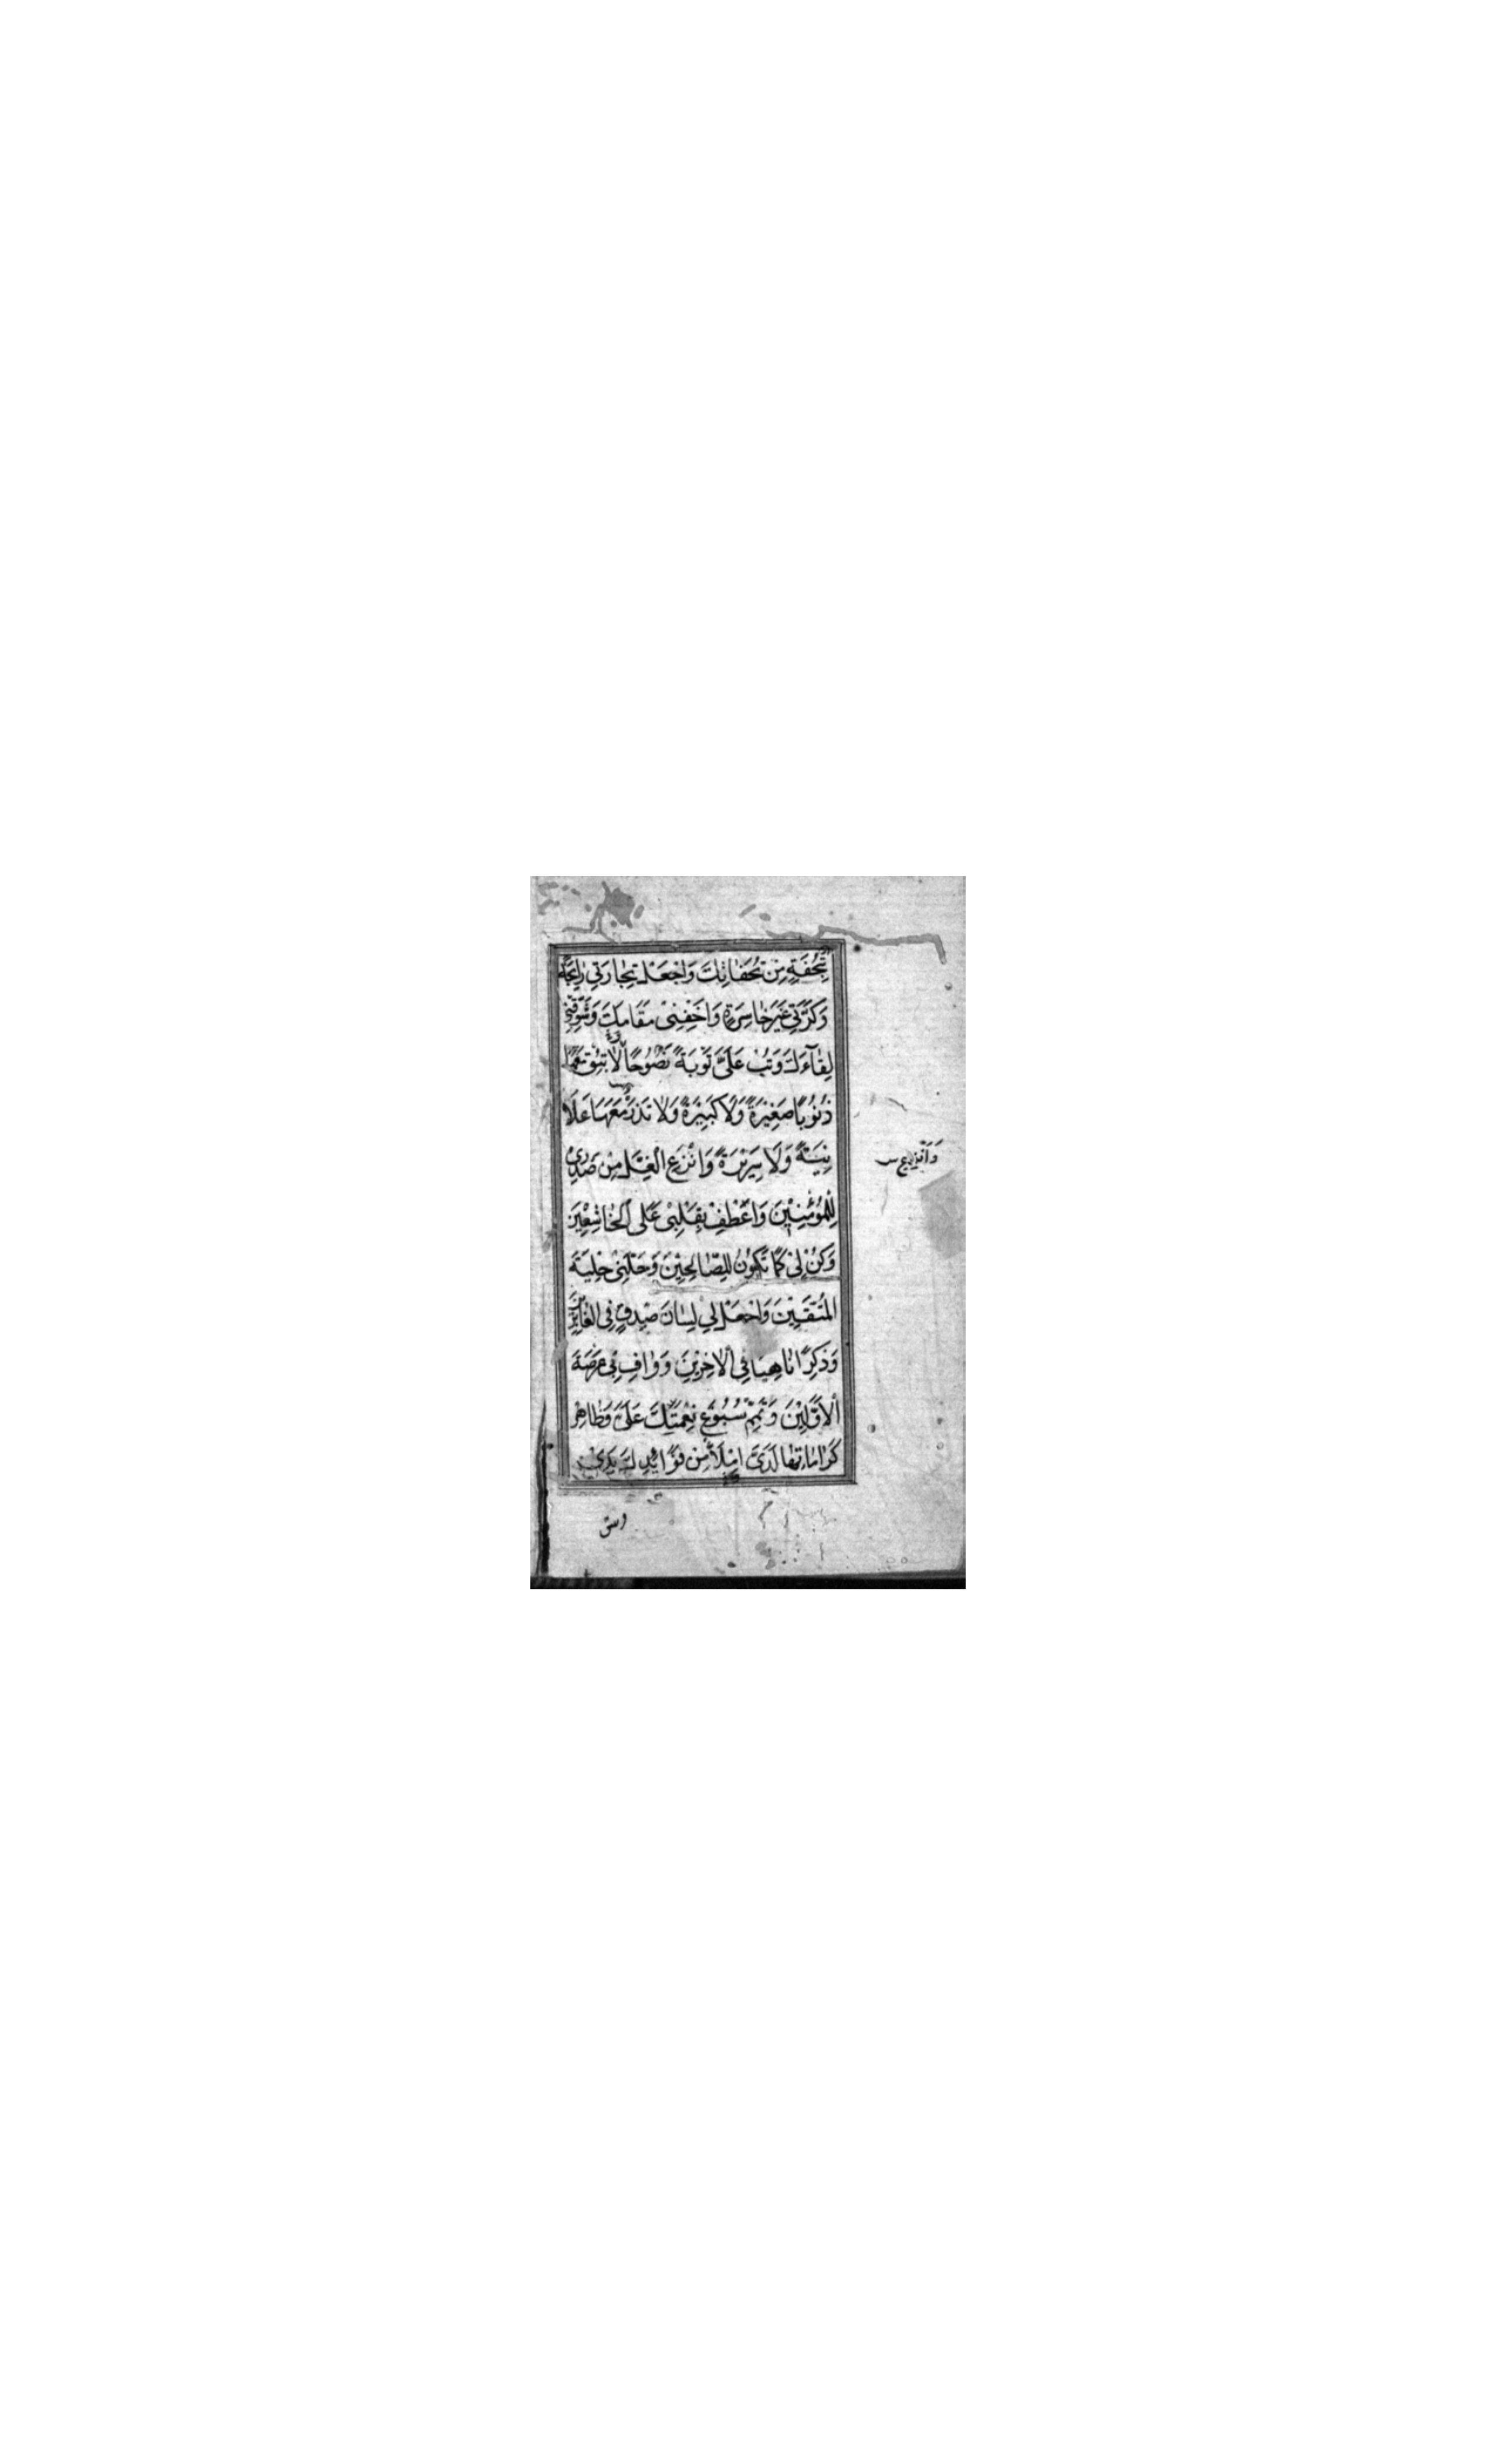 بِتُحْفَةٍ مِنْ تُحَفَاتِكَ وَاجْعَلْ تِجَارَتِي رَابِحَةً
وَكَرَّتِي غَيْرَ خَاسِرَةٍ وَاَخِفْنِي مَقَامَكَ وَشَوِّقْنِي
لِقَاءَكَ وَتُبْ عَلَيَّ تَوْبَةً نَصُوحًا لَا تُبْقِ مَعَهَا
ذُنُوبًا صَغِيرَةً وَلَا كَبِيرَةً وَلَا تَذَرْ مَعَهَا عَلَا
نِيَةً وَلَا سَرِيرَةً وَانْزَعِ الْغِلَّ مِنْ صَدْرِي
لِلْمُؤْمِنِينَ وَاعْطِفْ بِقَلْبِي عَلَى الْخَاشِعِينَ
وَكُنْ لِي كَمَا تَكُونُ لِلصَّالِحِينَ وَحَلِّنِي حِلْيَةَ
الْمُتَّقِينَ وَاجْعَلْ لِي لِسَانَ صِدْقٍ فِي الْغَابِرِينَ
وَذِكْرًا نَامِيًا فِي الْاٰخِرِينَ وَوَافِ بِي عَرْصَةَ
الْاَوَّلِينَ وَتَمِّمْ سُبُوغَ نِعْمَتِكَ عَلَيَّ وَظَاهِرْ
كَرَامَاتِهَا لَدَيَّ امْلَأْ مِنْ فَوَائِدِكَ يَدَيَّ